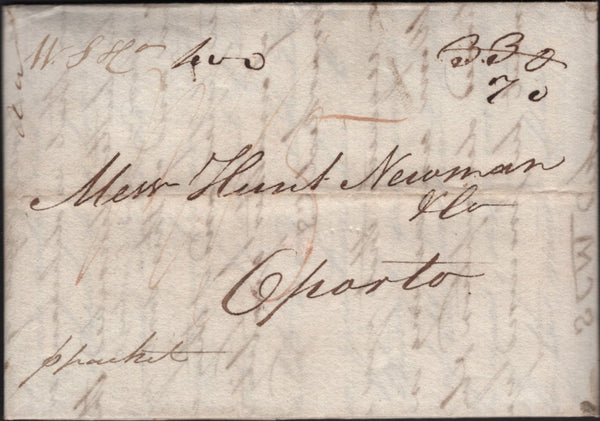 400 330
70
Messrs Hunt Newman
&Co
Oporto
p packet